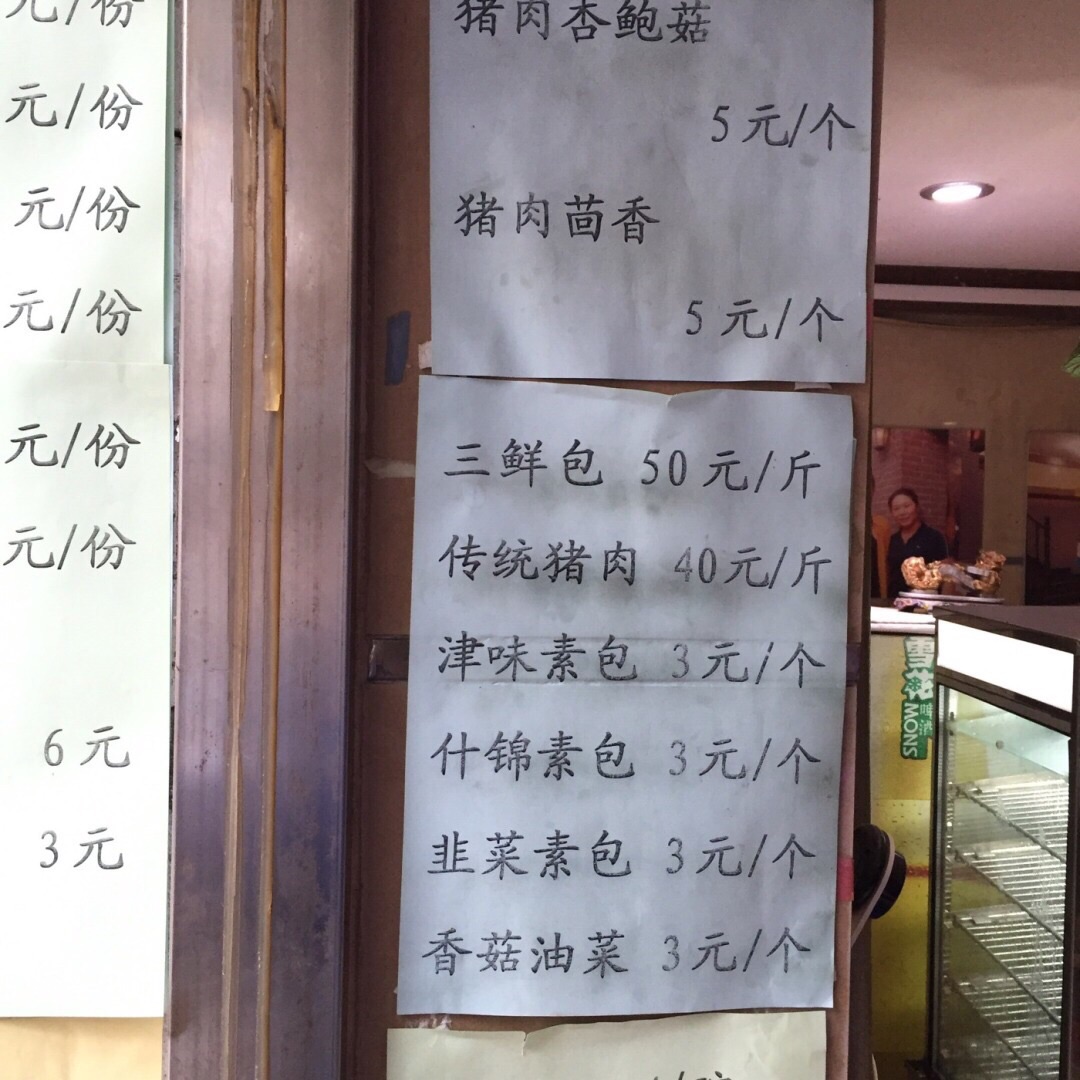 元/份
元/份
元/份
元/份
元/份
元/份
6元
3元
猪肉杏鲍菇
5元/个
猪肉茴香
5元/个
三鲜包 50元/斤
传统猪肉 40元/斤
津味素包 3元/个
什锦素包 3元/个
韭菜素包 3元/个
香菇油菜 3元/个
雪花
啤酒
MONS